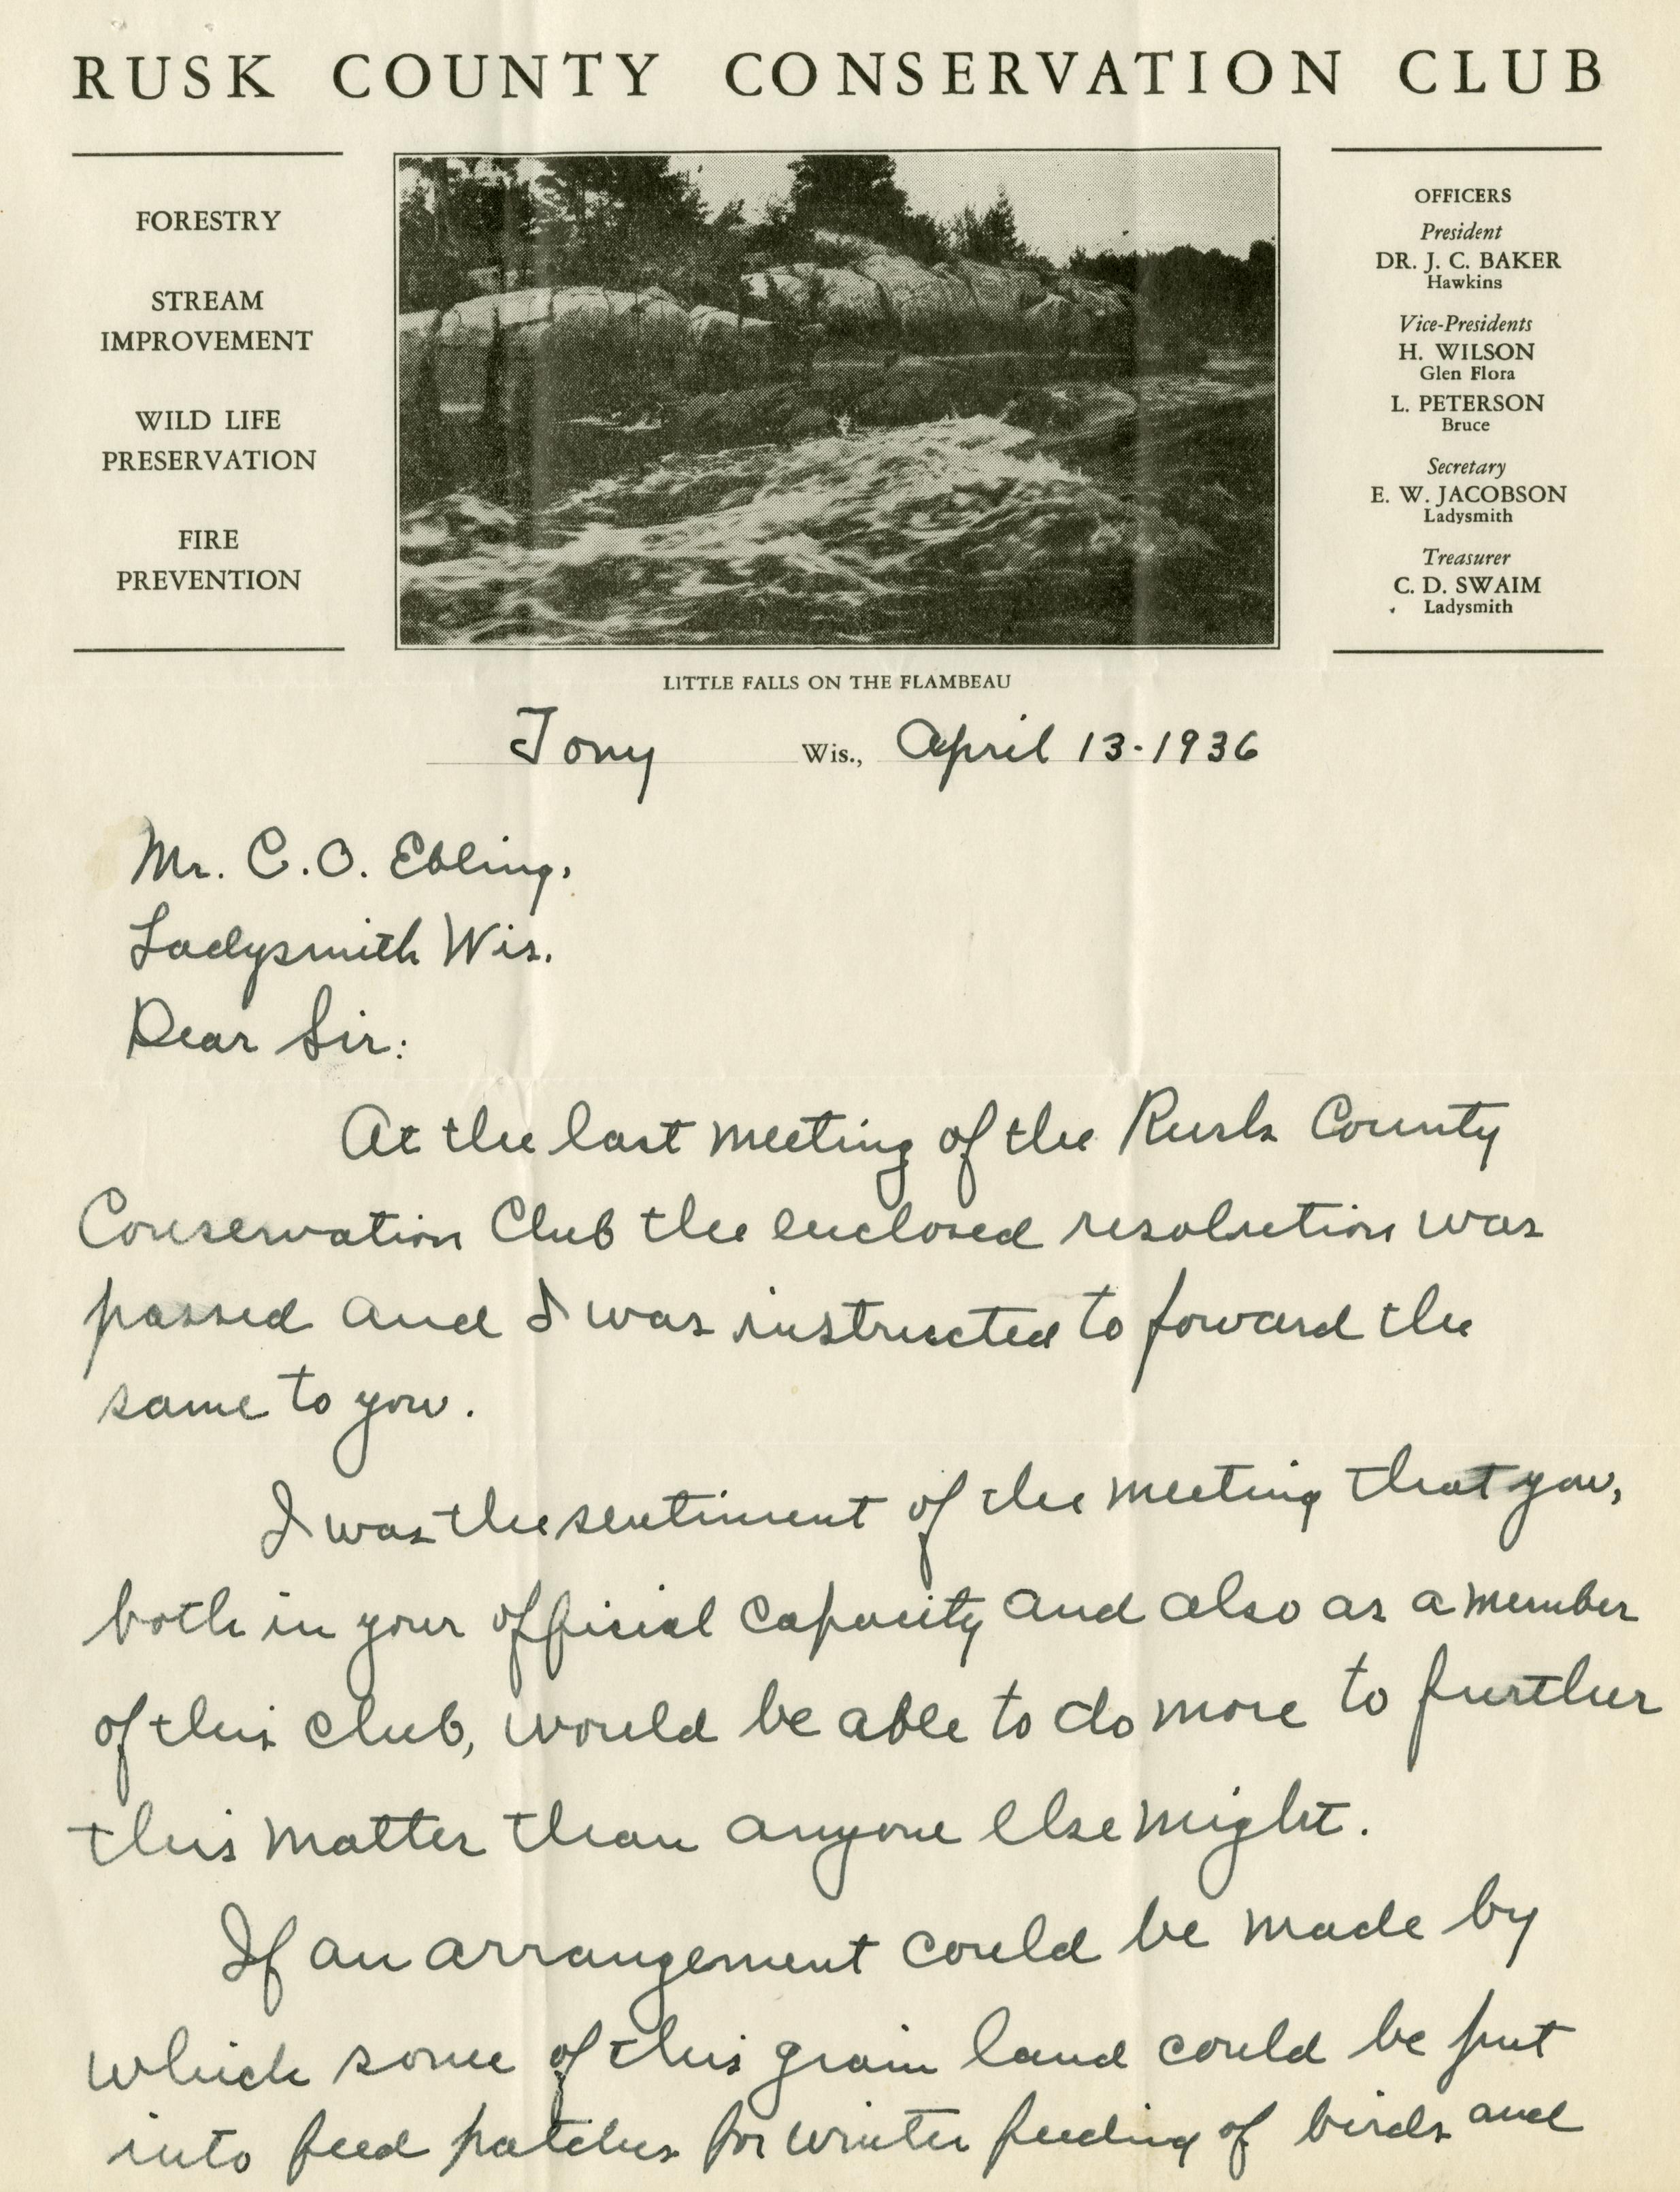 RUSK COUNTY CONSERVATION CLUB
FORESTRY
STREAM
IMPROVEMENT
WILD LIFE
PRESERVATION
FIRE
PREVENTION
OFFICERS
President
DR. J. C. BAKER
Hawkins
Vice-Presidents
H. WILSON
Glen Flora
L. PETERSON
Bruce
Secretary
E. W. JACOBSON
Ladysmith
Treasurer
C. D. SWAIM
Ladysmith
LITTLE FALLS ON THE FLAMBEAU
Tony Wis., April 13-1936
Mr. C. O. Ebling.
Ladysmith Wis.
Dear Sir:
At the last meeting of the Rusk County
Conservation Club the enclosed resolution was
passed and I was instructed to foward the
same to you.
I was the sentiment of the meeting that you,
both in your official capacity and also as a member
of this club, would be able to do more to further
this matter than anyone else might.
If an arrangement could be made by
which some of this grain land could be put
into feed patches for winter feeding of birds and